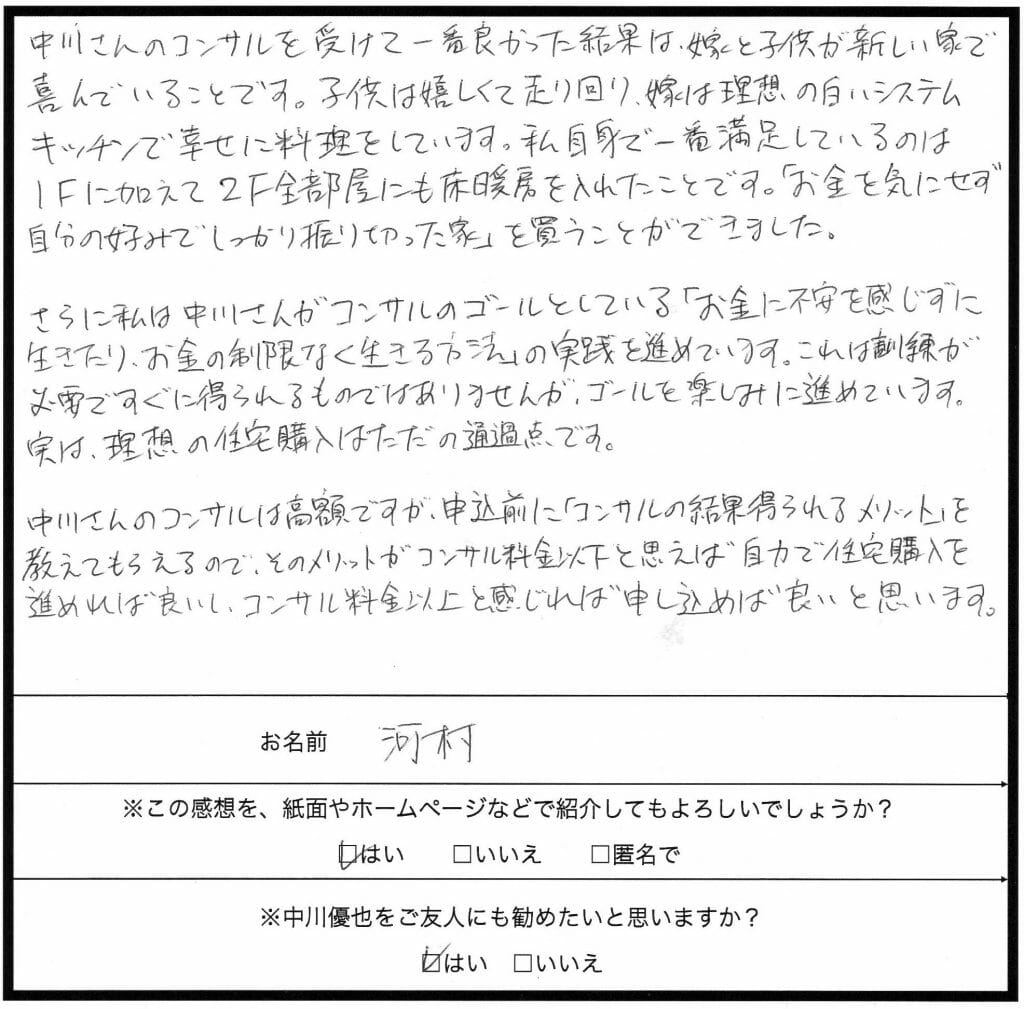 中川さんのコンサルを受けて一番良かった結果は、嫁と子供が新しい家で
喜んでいることです。子供は嬉しくて走り回り、嫁は理想の白いシステム
キッチンで幸せに料理をしています。私自身で一番満足しているのは
1Fに加えて2F全部屋にも床暖房を入れたことです。「お金を気にせず
自分の好みでしっかり振り切った家」を買うことができました。
さらに私は中川さんがコンサルのゴールとしている「お金に不安を感じずに
生きたり、お金の制限なく生きる方法」の実践を進めています。これは訓練が
必要ですぐに得られるものではありませんが、ゴールを楽しみに進めています。
実は、理想の住宅購入はただの通過点です。
中川さんのコンサルは高額ですが、申込前に「コンサルの結果得られるメリット」を
教えてもらえるので、そのメリットがコンサル料金以下と思えば自力で住宅購入を
進めれば良いし、コンサル料金以上と感じれば申し込めば良いと思います。
お名前 河村
※この感想を、紙面やホームページなどで紹介してもよろしいでしょうか？
☑はい □いいえ □匿名で
※中川優也をご友人にも勧めたいと思いますか？
☑はい □いいえ